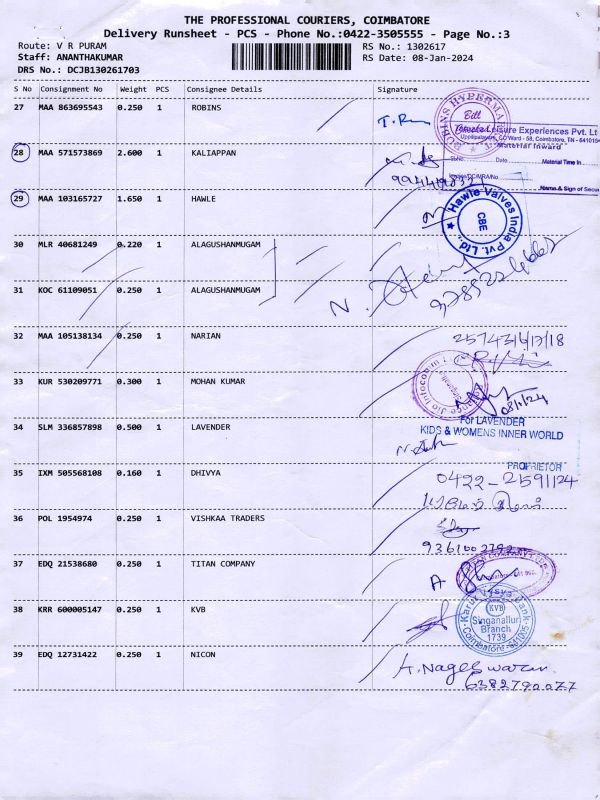 THE PROFESSIONAL COURIERS, COIMBATORE
Delivery Runsheet - PCS - Phone No.:0422-3505555 - Page No.:3
Route: V R PURAM
RS No.: 1302617
Staff: ANANTHAKUMAR
RS Date: 08-Jan-2024
DRS No.: DCJB130261703
S No Consignment No Weight PCS Consignee Details Signature
27 MAA 863695543 0.250 1 ROBINS
ROBINS HYPERMA
Bill
Leisure Experiences Pvt. Lt
Material Inward
Date
Material Time In
Name & Sign of Secu
28 MAA 571573869 2.600 1 KALIAPPAN
29 MAA 103165727 1.650 1 HAWLE
Hawle Valves India Pvt. Ltd.
CBE
30 MLR 40681249 0.220 1 ALAGUSHANMUGAM
31 KOC 61109051 0.250 1 ALAGUSHANMUGAM
32 MAA 105138134 0.250 1 NARIAN
33 KUR 530209771 0.300 1 MOHAN KUMAR
08/1/24
34 SLM 336857898 0.500 1 LAVENDER
For LAVENDER
KIDS & WOMENS INNER WORLD
PROPRIETOR
35 IXM 505568108 0.160 1 DHIVYA
0422-2591124
36 POL 1954974 0.250 1 VISHKAA TRADERS
37 EDQ 21538680 0.250 1 TITAN COMPANY
38 KRR 600005147 0.250 1 KVB
KVB
Singanallur
Branch
1739
39 EDQ 12731422 0.250 1 NICON
A. Nageswaran
6382790077